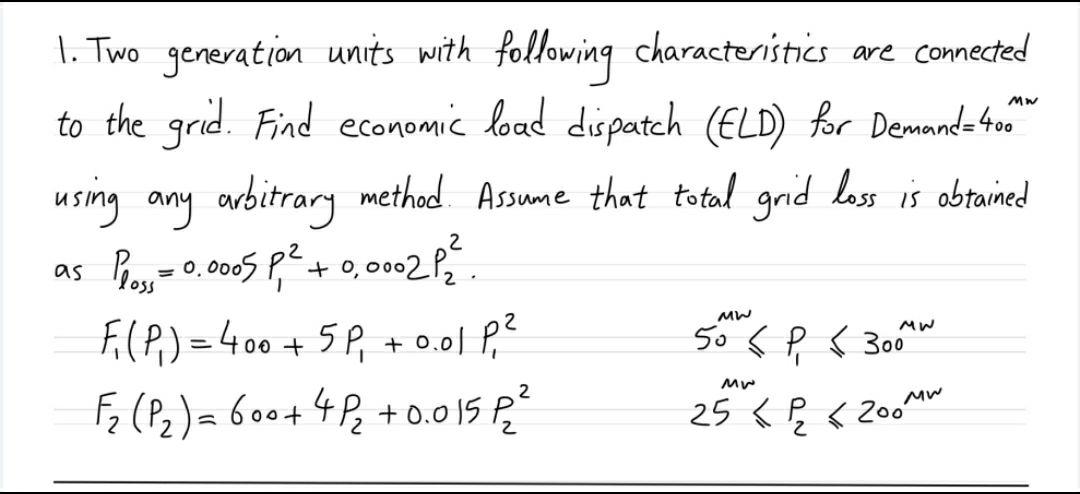 1. Two generation units with following characteristics are connected
to the grid. Find economic load dispatch (ELD) for Demand=400 MW
using any arbitrary method. Assume that total grid loss is obtained
as P_loss = 0.0005 P₁² + 0,0002 P₂² .
F₁(P₁) = 400 + 5 P₁ + 0.01 P₁² 50 MW ≤ P₁ ≤ 300 MW
F₂(P₂) = 600 + 4 P₂ + 0.015 P₂² 25 MW ≤ P₂ ≤ 200 MW